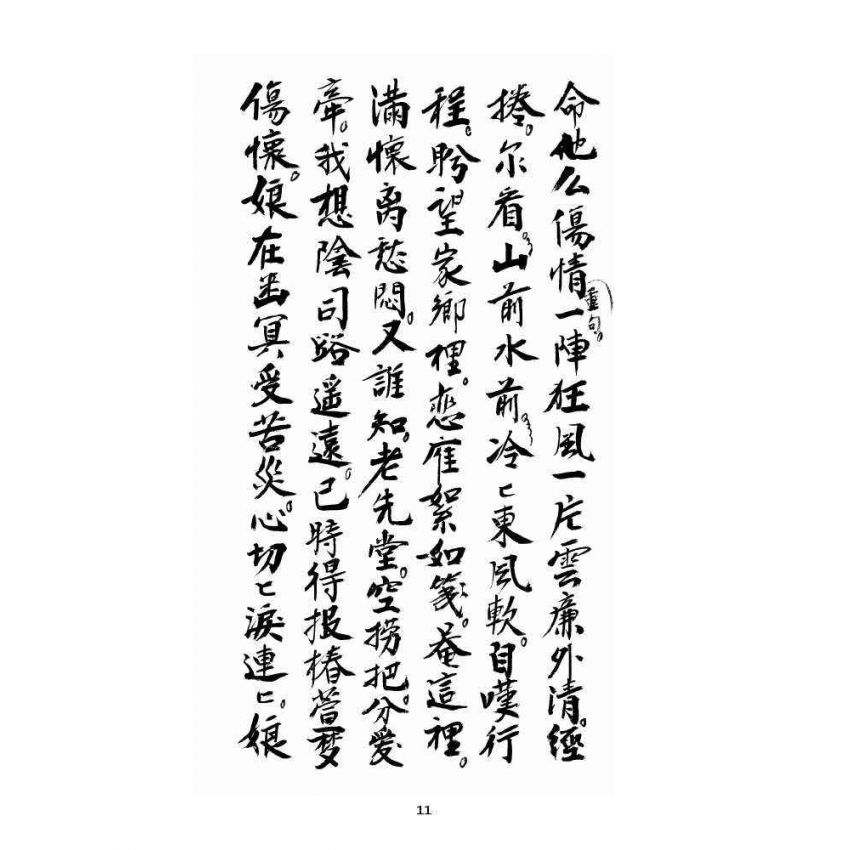 命他么傷情一陣狂風一片雲廉外清。經
重句。
捲。尔看。山前水前。冷ㄷ東風軟。自嘆行
程。盻望家鄉裡。悲雁絮如箋。菴這裡。
滿懷离愁悶。又誰知。老先堂。空撈把。分愛
牽。我想陰司路遥遠。已時得报椿萱梦
傷懷。娘在幽冥受苦災。心切ㄷ淚連ㄷ。娘
11